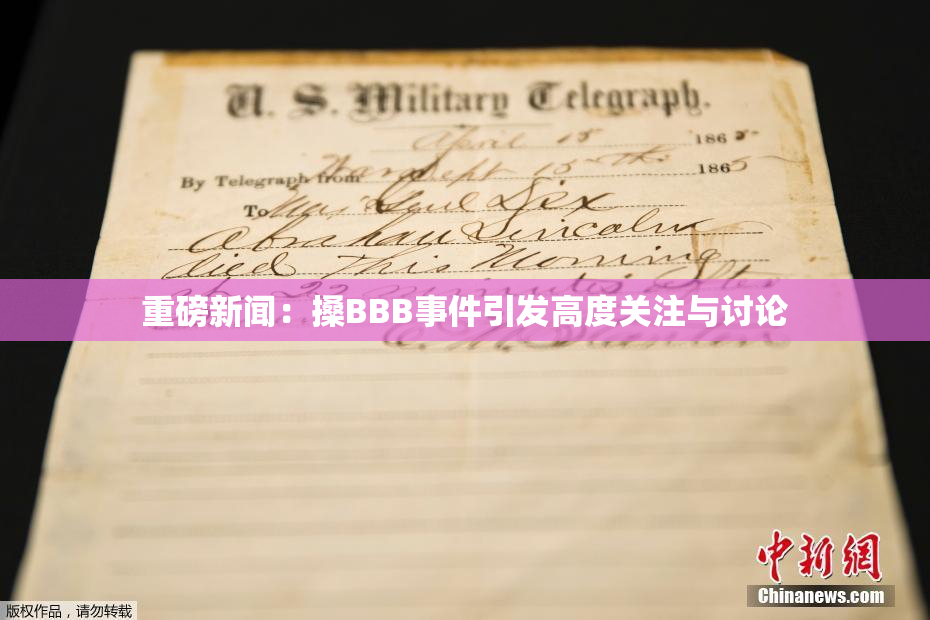 U. S. Military Telegraph.
April 15 1865
By Telegraph from War Dept 15th 1865
To Maj Genl Dix
Abraham Lincoln
died this Morning
at 22 minutes after
重磅新闻：搡BBB事件引发高度关注与讨论
E. M. Stanton
中新网
Chinanews.com
版权作品，请勿转载